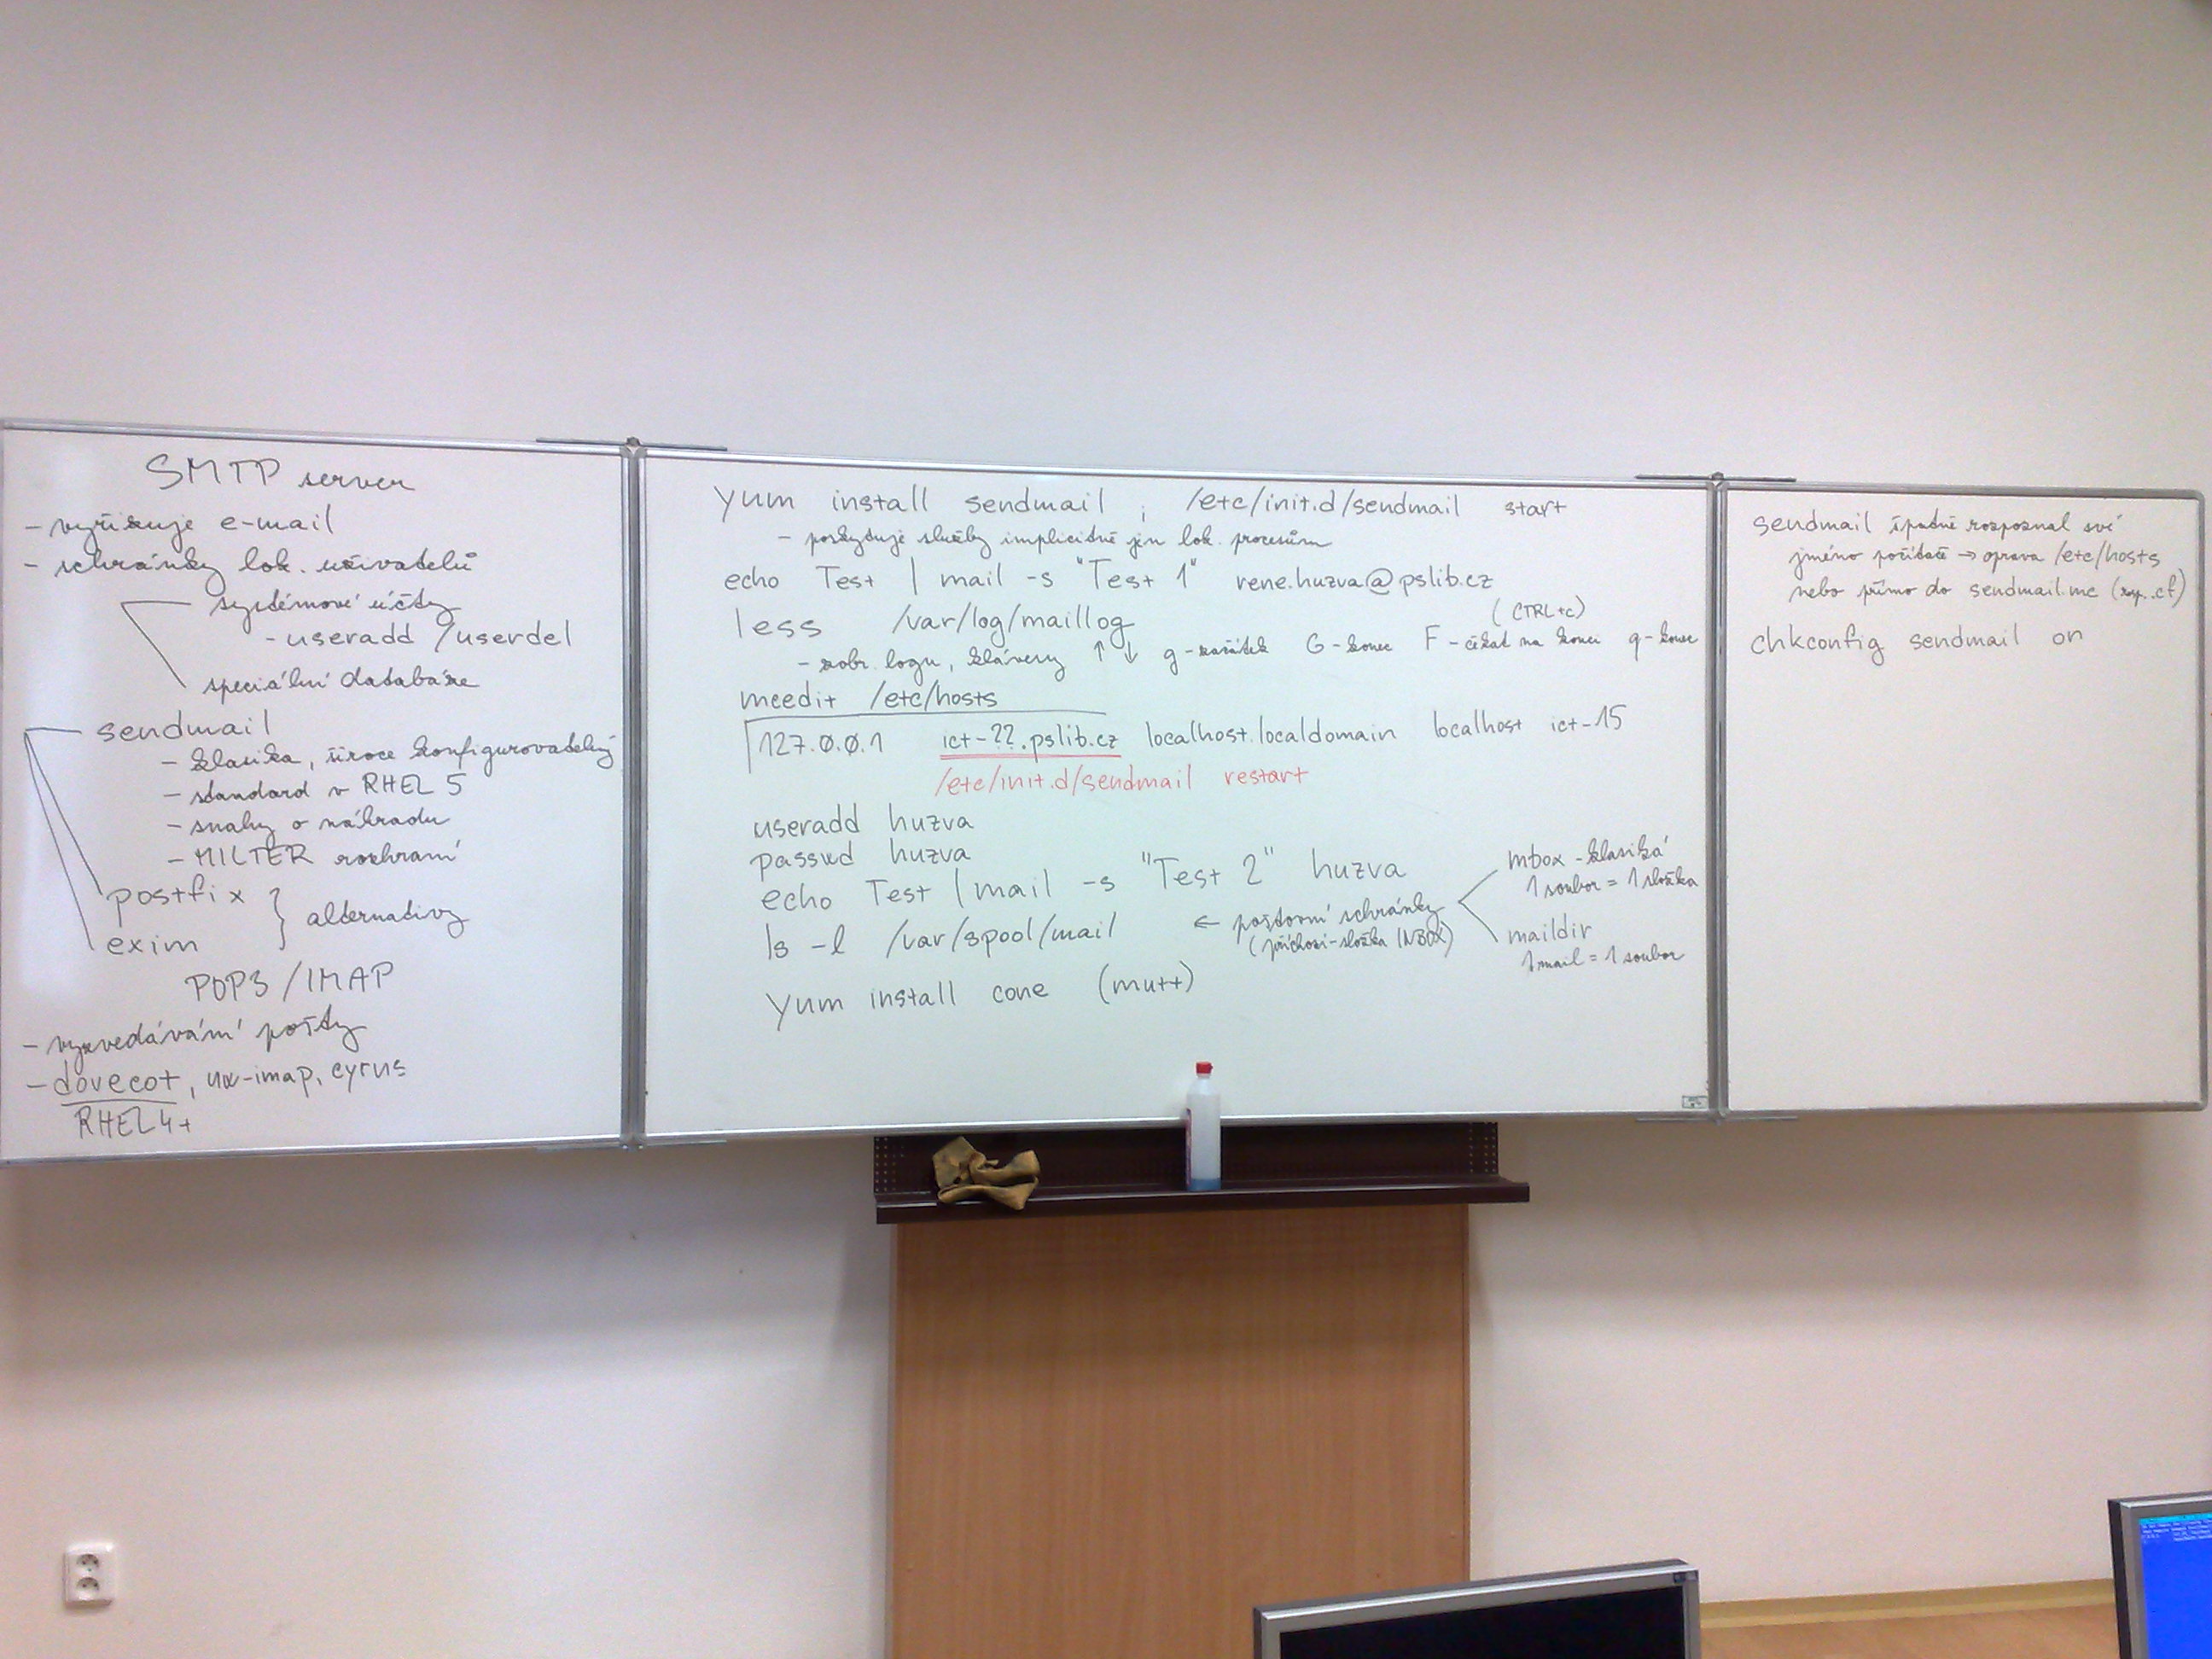 SMTP server
- vyřizuje e-mail
- schránky lok. uživatelů
systémové účty
- useradd /userdel
speciální databáze
sendmail
- klasika, široce konfigurovatelný
- standard v RHEL 5
- snahy o náhradu
- MILTER rozhraní
postfix
exim
} alternativy
POP3 / IMAP
- vyzvedávání pošty
- dovecot, uw-imap, cyrus
RHEL4+
yum install sendmail ; /etc/init.d/sendmail start
- poskytuje služby implicitně jen lok. procesům
echo Test | mail -s "Test 1" rene.huzva@pslib.cz
less /var/log/maillog
(CTRL+c)
- zobr. logu, klávesy ↑ ↓ g-začátek G-konec F-čekat na konci q-konec
mcedit /etc/hosts
127.0.0.1 ict-??.pslib.cz localhost.localdomain localhost ict-15
/etc/init.d/sendmail restart
useradd huzva
passwd huzva
echo Test | mail -s "Test 2" huzva
ls -l /var/spool/mail ← poštovní schránky
(příchozí-složka INBOX)
mbox - klasická
1 soubor = 1 složka
maildir
1 mail = 1 soubor
yum install cone (mutt)
sendmail špatně rozpoznal své
jméno počítače → oprava /etc/hosts
nebo přímo do sendmail.mc (resp. .cf)
chkconfig sendmail on